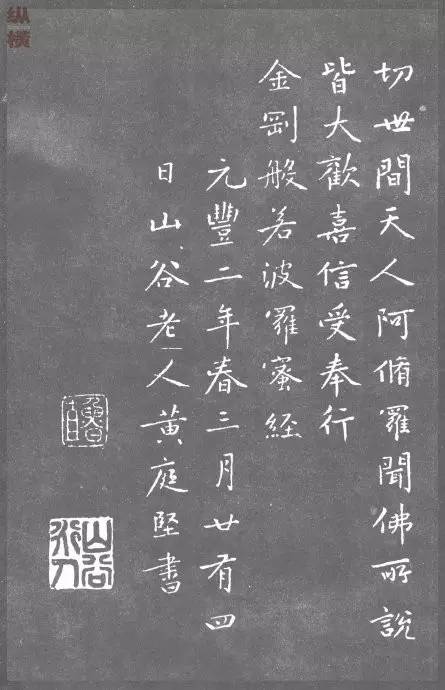 纵横
切世間天人阿脩羅聞佛所說
皆大歡喜信受奉行
金剛般若波羅蜜經
元豐二年春三月廿有四
日山谷老人黃庭堅書
魯直
山谷